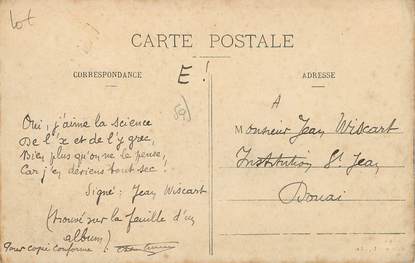 lot
CARTE POSTALE
CORRESPONDANCE
E!
ADRESSE
Oui, j'aime la science
De l'x et de l'y grec,
Bien plus qu'on ne le pense,
Car j'en deviens tout sec!
Signé: Jean Wiscart
(trouvé sur la feuille d'un
album)
Pour copie conforme:
A
Monsieur Jean Wiscart
Institution St Jean
Douai